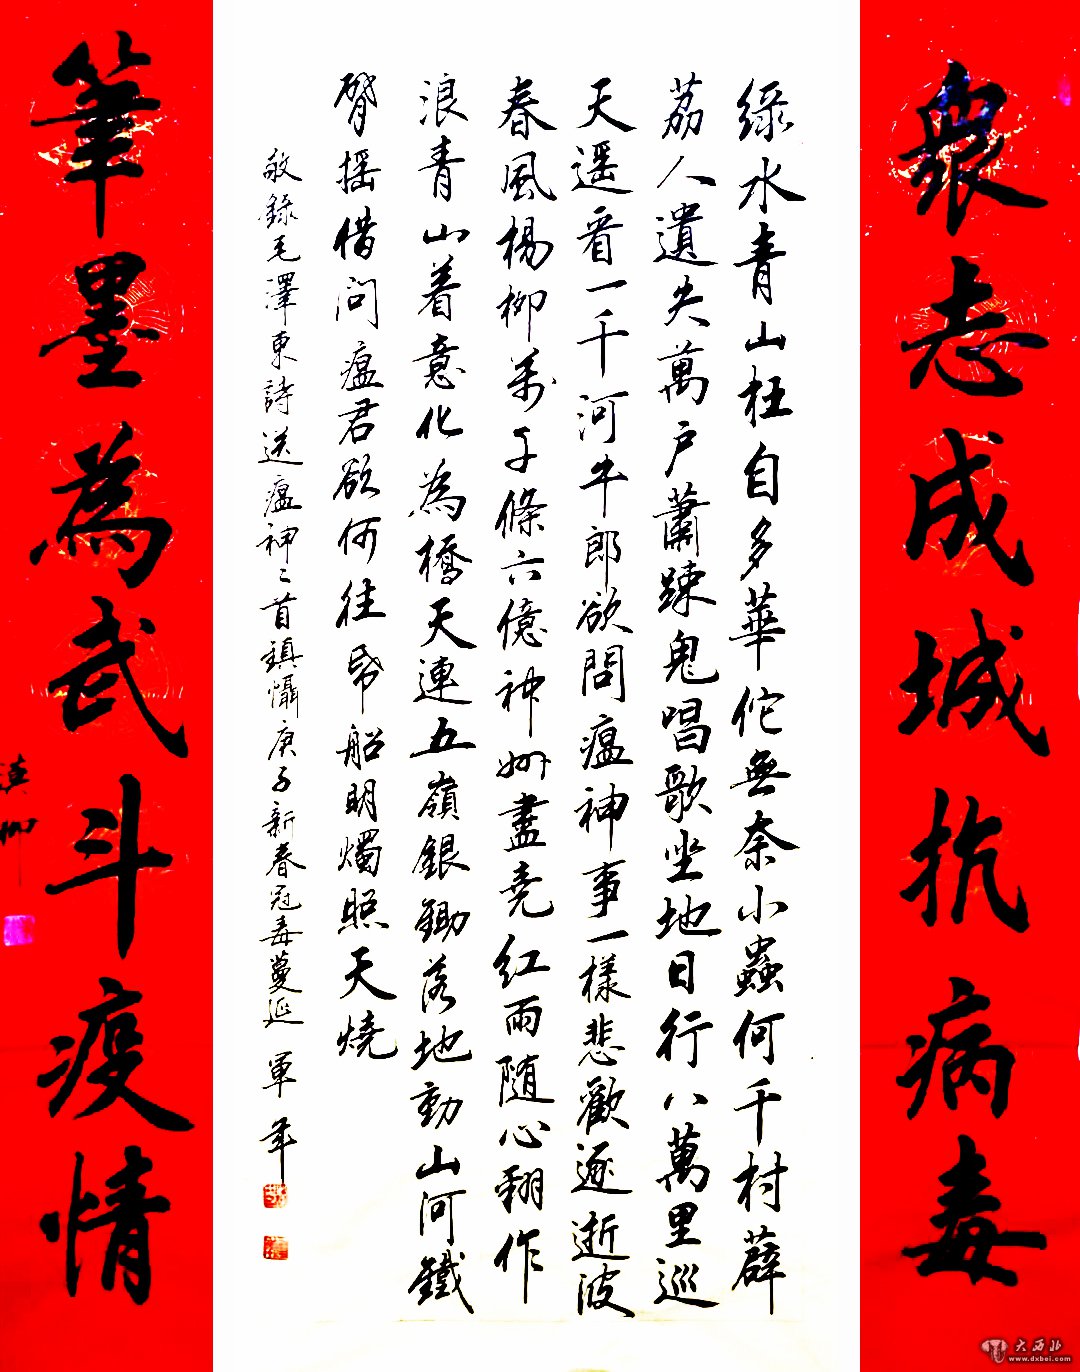 衆志成城抗病毒
綠水青山枉自多華佗無奈小蟲何千村薜
荔人遺失萬户蕭踈鬼唱歌坐地日行八萬里巡
天遥看一千河牛郎欲問瘟神事一樣悲歡逐逝波
春風楊柳萬千條六億神州盡堯紅雨隨心翻作
浪青山着意化為橋天連五嶺銀鋤落地動山河鐵
臂摇借问瘟君欲何往帋船明燭照天燒
敬錄毛澤東詩送瘟神二首鎮懾庚子新春冠毒蔓延 軍年
筆墨為武斗疫情
大西北
www.dxbei.com